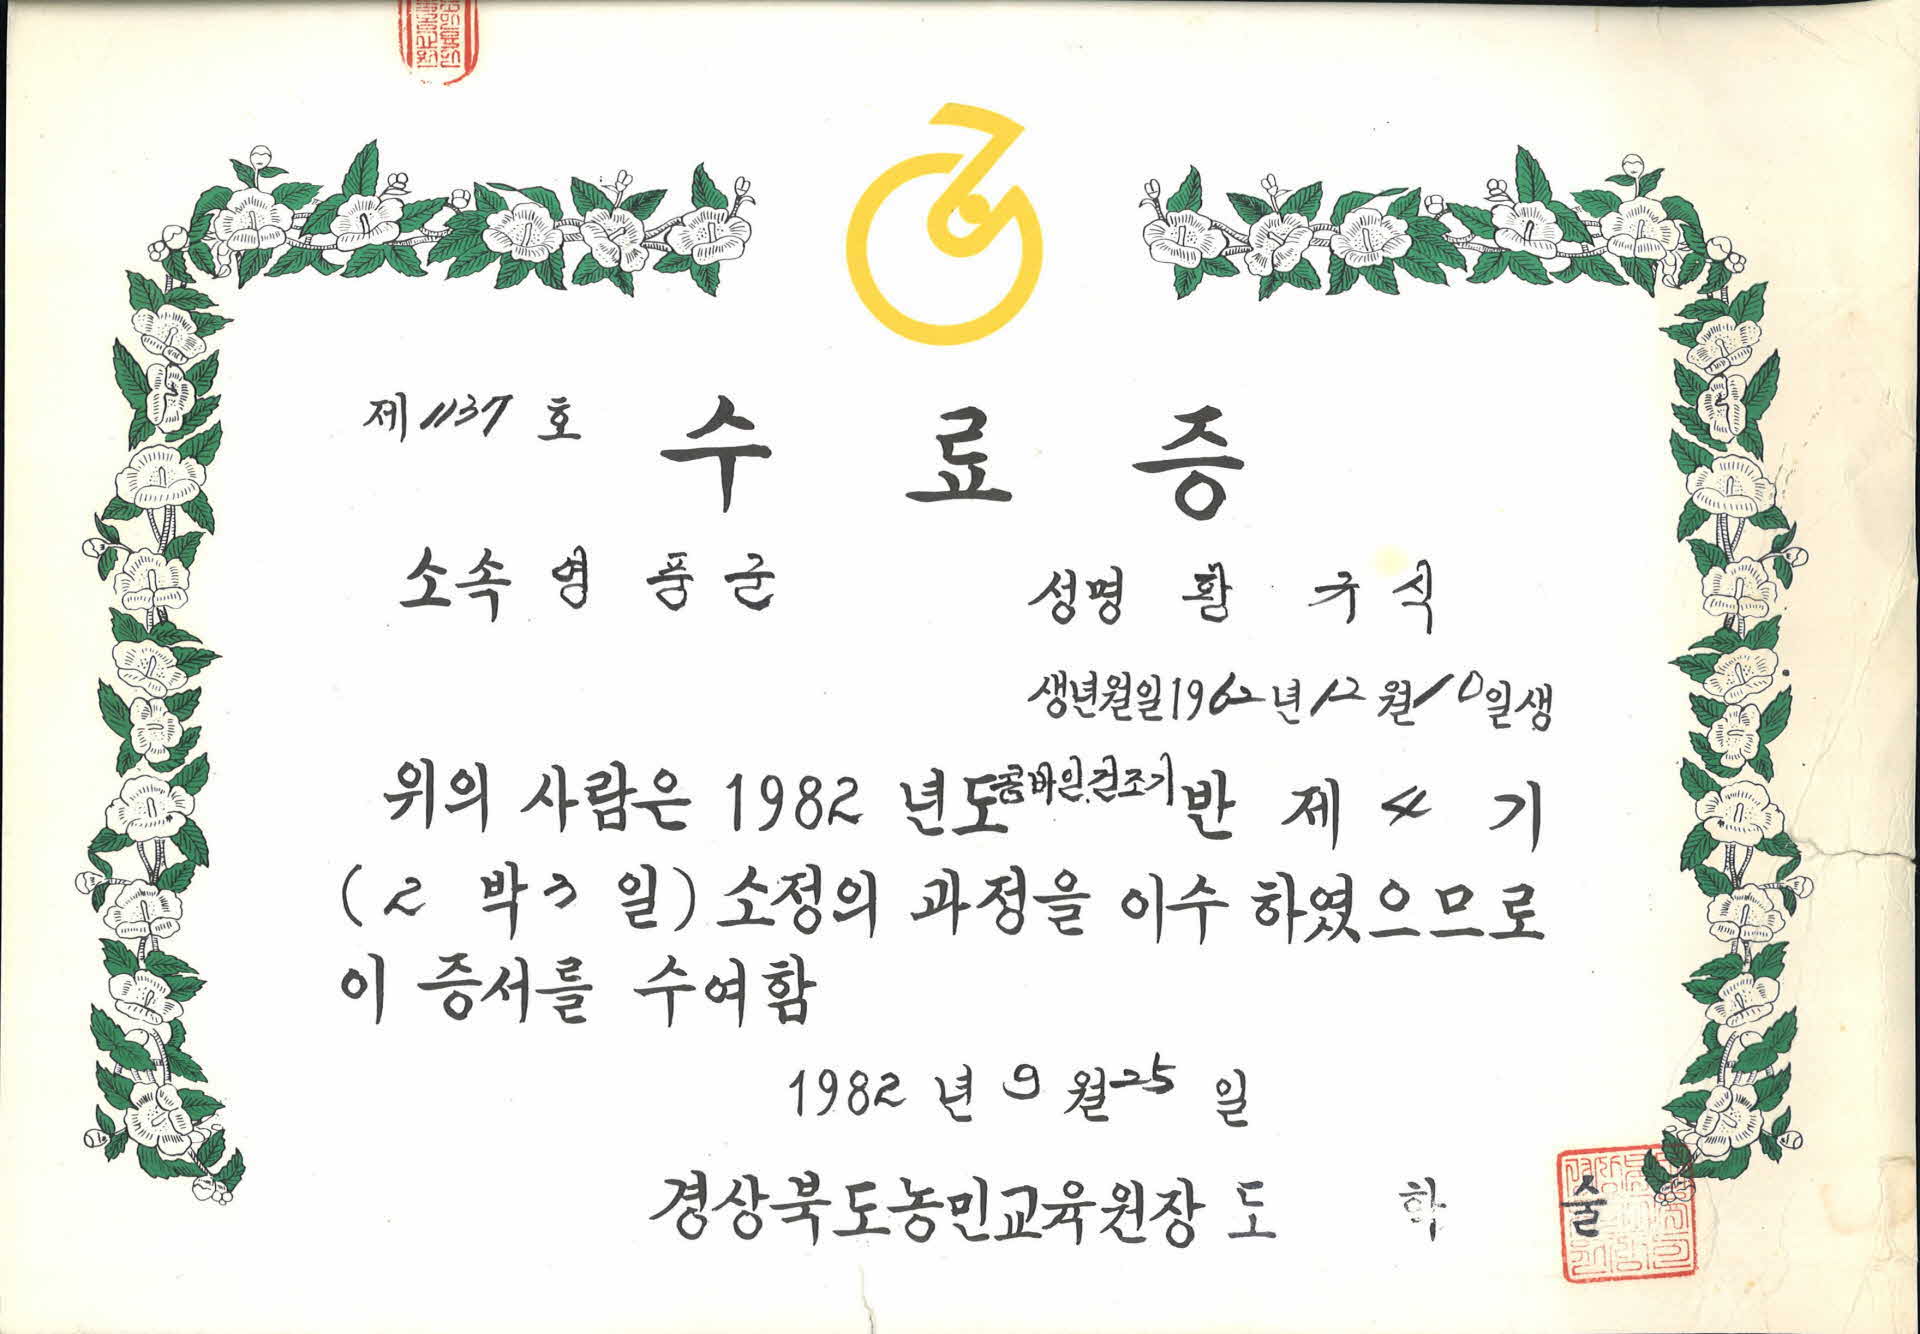 제 1137 호
수 료 증
소속 영 풍 군
성명 황 규 식
생년월일 1962년 12월 10일생
위의 사람은 1982 년도 콤바인.건조기 반 제 4 기
(2 박 3 일) 소정의 과정을 이수 하였으므로
이 증서를 수여함
1982 년 9 월 25 일
경상북도농민교육원장 도 학 술